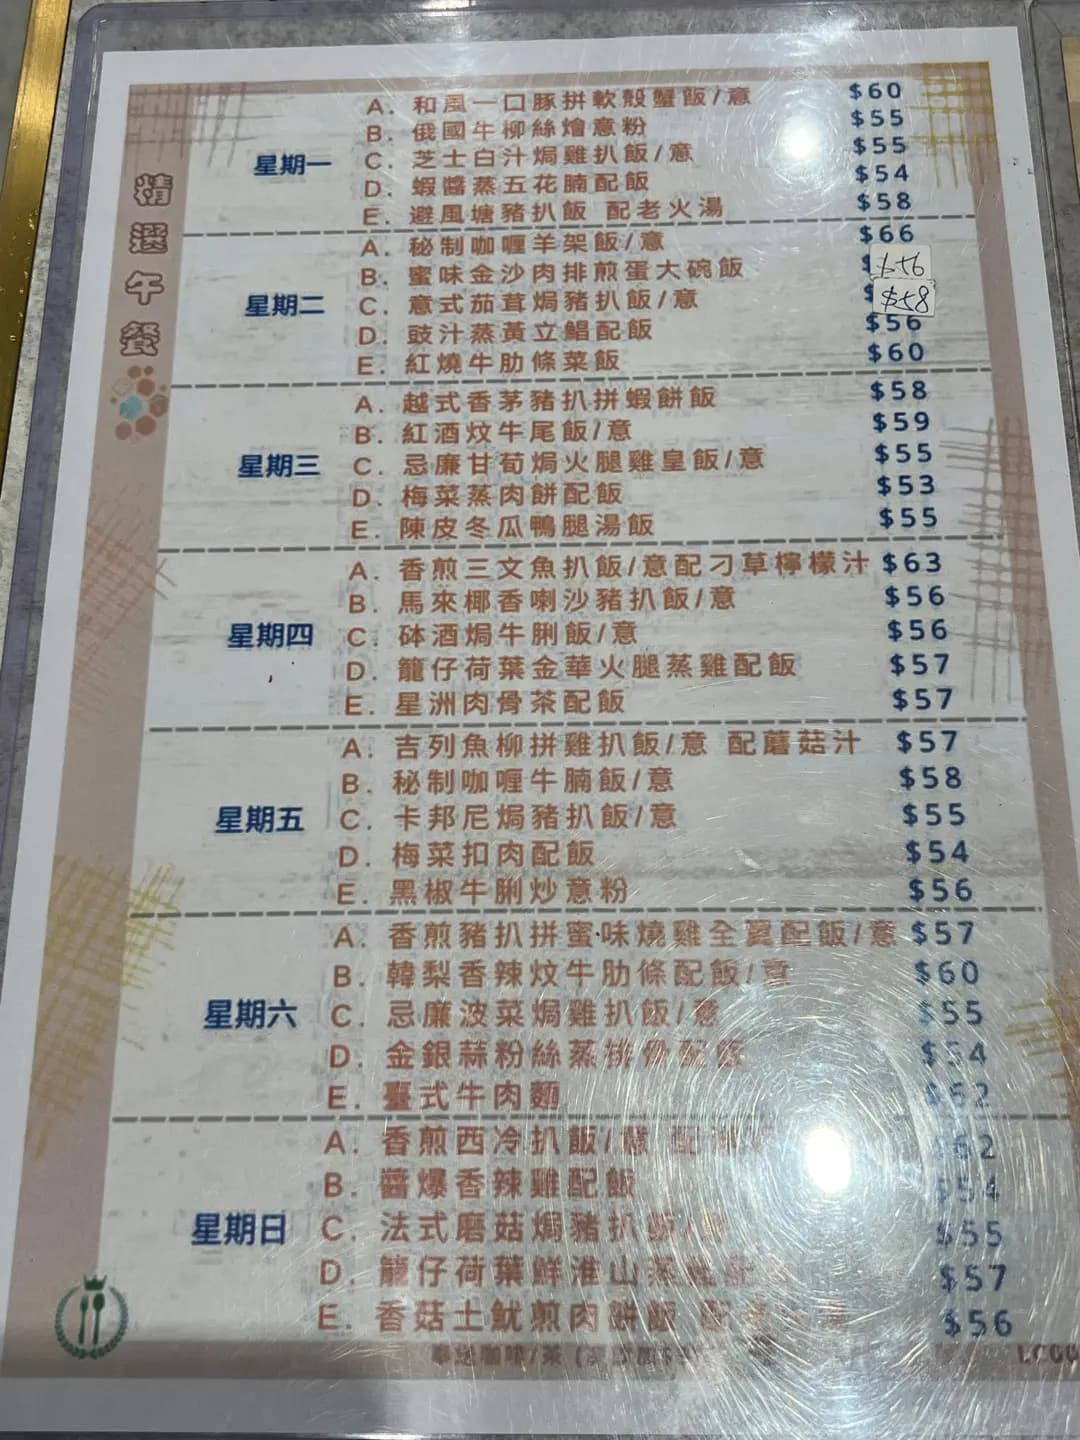 精選午餐
星期一
A. 和風一口豚拼軟殼蟹飯/意 $60
B. 俄國牛柳絲燴意粉 $55
C. 芝士白汁焗雞扒飯/意 $55
D. 蝦醬蒸五花腩配飯 $54
E. 避風塘豬扒飯 配老火湯 $58
星期二
A. 秘制咖喱羊架飯/意 $66
B. 蜜味金沙肉排煎蛋大碗飯 $56
C. 意式茄茸焗豬扒飯/意 $58
D. 豉汁蒸黃立鯧配飯 $56
E. 紅燒牛肋條菜飯 $60
星期三
A. 越式香茅豬扒拼蝦餅飯 $58
B. 紅酒炆牛尾飯/意 $59
C. 忌廉甘荀焗火腿雞皇飯/意 $55
D. 梅菜蒸肉餅配飯 $53
E. 陳皮冬瓜鴨腿湯飯 $55
星期四
A. 香煎三文魚扒飯/意配刁草檸檬汁 $63
B. 馬來椰香喇沙豬扒飯/意 $56
C. 砵酒焗牛脷飯/意 $56
D. 籠仔荷葉金華火腿蒸雞配飯 $57
E. 星洲肉骨茶配飯 $57
星期五
A. 吉列魚柳拼雞扒飯/意 配蘑菇汁 $57
B. 秘制咖喱牛腩飯/意 $58
C. 卡邦尼焗豬扒飯/意 $55
D. 梅菜扣肉配飯 $54
E. 黑椒牛脷炒意粉 $56
星期六
A. 香煎豬扒拼蜜味燒雞全翼配飯/意 $57
B. 韓梨香辣炆牛肋條配飯/意 $60
C. 忌廉菠菜焗雞扒飯/意 $55
D. 金銀蒜粉絲蒸排骨配飯 $54
E. 臺式牛肉麵 $52
星期日
A. 香煎西冷扒飯/意 配 $62
B. 醬爆香辣雞配飯 $54
C. 法式磨菇焗豬扒飯/意 $55
D. 籠仔荷葉鮮淮山蒸 $57
E. 香菇土魷煎肉餅飯 配 $56